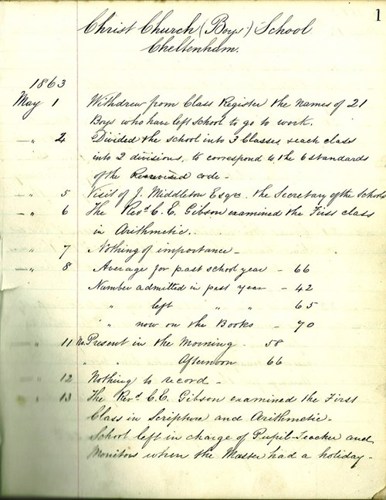 1
Christ Church (Boys') School
Cheltenham.
1863
May 1 Withdrew from Class Register the names of 21
Boys who have left school to go to work.
" 2 Divided the school into 3 Classes, each class
into 2 divisions, to correspond to the 6 standards
of the Revised code -
" 5 Visit of J. Middleton Esqre. the Secretary of the Schools
" 6 The Revd. C. E. Gibson examined the First class
in Arithmetic.
" 7 Nothing of importance -
" 8 Average for past school year - 66
Number admitted in past year - 42
" left " " 65
" now on the Books - 70
" 11 No. Present in the Morning - 58
" " Afternoon 66
" 12 Nothing to record -
" 13 The Revd. C. E. Gibson examined the First
Class in Scripture and Arithmetic -
School left in charge of Pupil-Teacher and
Monitors when the Master had a holiday -